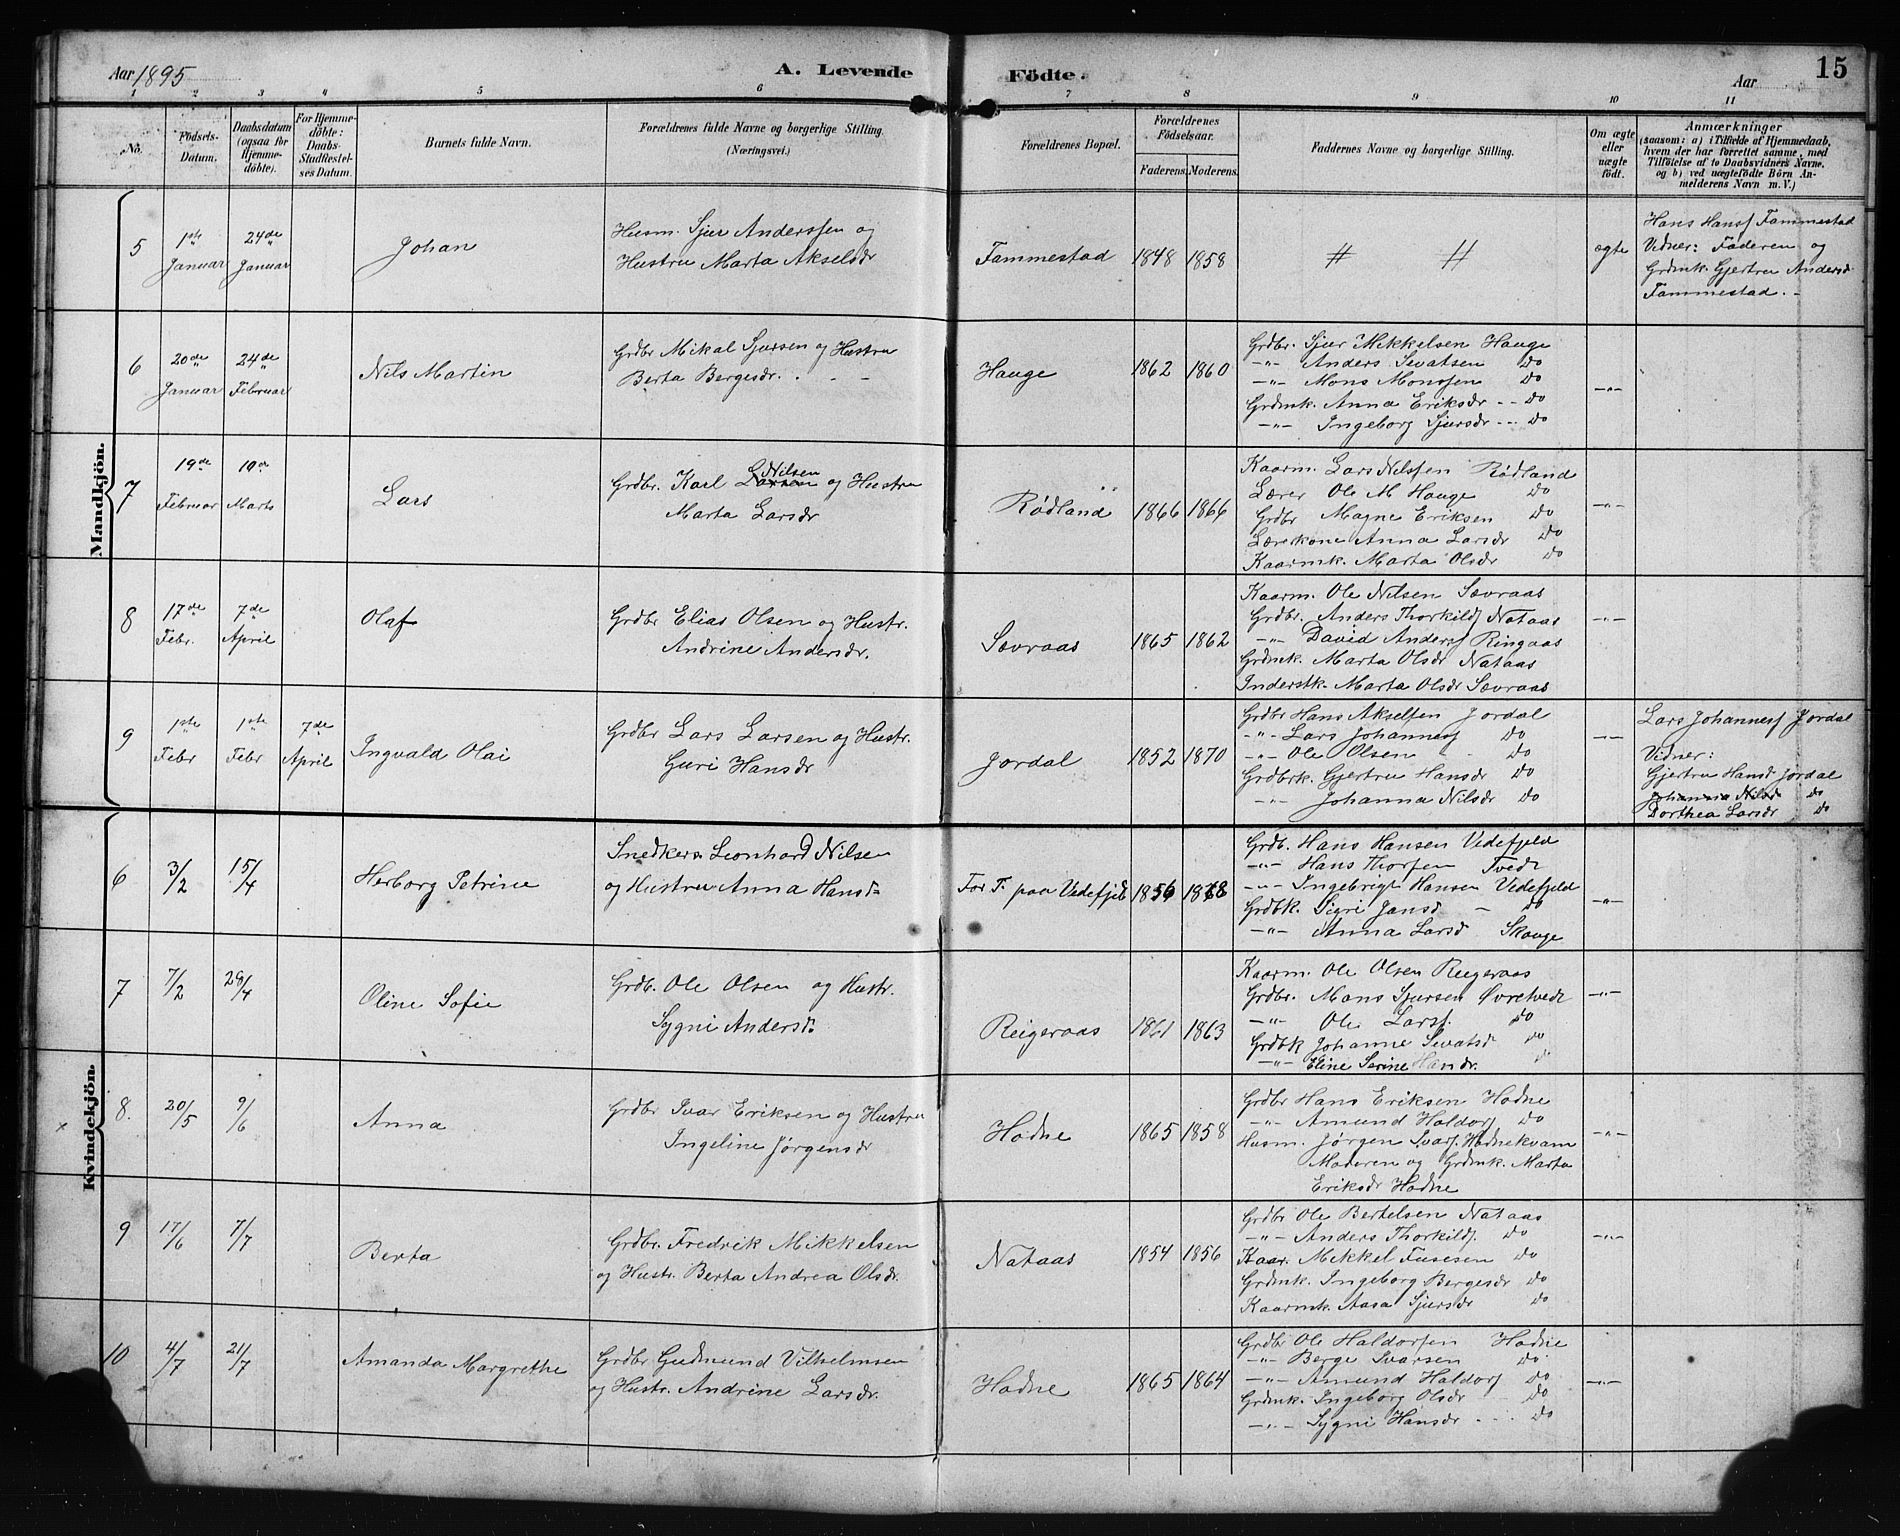 Aar 1895 A. Levende Födte. Aar 15
1 2 3 4 5 6 7 8 9 10 11
No. Födsels-Datum. Daabsdatum (ogsaa for Hjemmedøbte). For Hjemmedøbte: Daabs-Stadfæstelses Datum. Barnets fulde Navn. Forældrenes fulde Navne og borgerlige Stilling. (Næringsvei.) Forældrenes Bopæl. Forældrenes Födselsaar. Faderens. Moderens. Faddernes Navne og borgerlige Stilling. Om ægte eller uægte födt. Anmærkninger (saasom: a) i Tilfælde af Hjemmedaab, hvem der har forrettet samme, med Tilföielse af to Daabsvidners Navne, og b) ved uægtefödte Börn Anmelderens Navn m. V.)
Mandkjön.
5 1ste Januar 24de Januar Johan
Husm. Sjur Anderssen og
Hustru Marta Akselsdr
Fammestad 1848 1858 # # ægte
Hans Hansf Fammestad
Vidner: Faderen og
Grdmk. Gjertru Andersd
Fammestad. -
6 20de Januar 24de Februar Nils Martin
Grdbr Mikal Sjursen og Hustru
Berta Bergesdr. . - -
Hauge 1862 1860
Grdbr. Sjur Mikkelsen Hauge
-"- Anders Sivatsen Do
-"- Mons Monssen Do
Grdmk. Anna Eriksdr -- Do
-"- Ingeborg Sjursdr -- Do
-"-
7 19de Februar 10de Marts Lars
Nilsen
Grdbr. Karl Larsen og Hustru
Marta Larsdr
Rødland 1866 1866
Kaarm. Lars Nilssen Rødland
Lærer Ole M Hauge Do
Grdbr Magne Eriksen Do
Lærerkone Anna Larsdr Do
Kaarmk. Marta Olsdr Do
-"-
8 17de Febr. 7de April Olaf
Grdbr Elias Olsen og Hustr.
Andrine Andersdr.
Sævraas 1865 1862
Kaarm. Ole Nilsen Sævraas
Grdbr. Anders Thorkildf Nataas
-"- David Andersf Ringaas
Grdmk. Marta Olsdr Nataas
Inderstk. Marta Olsdr Sævraas
-"-
9 1ste Febr 1ste Febr 7de April Ingvald Olai
Grdbr Lars Larsen og Hustr.
Guri Hansdr
Jordal 1852 1870
Grdbr Hans Akselsen Jordal
-"- Lars Johannesf Do
-"- Ole Olsen - Do
Grdbrk. Gjertru Hansdr Do
-"- Johanna Nilsdr Do
-"-
Lars Johannesf Jordal
Vidner:
Gjertru Hansd Jordal
Johanna Nilsd Do
Dorthea Larsdr Do
Kvindekjön.
6 3/2 15/4 Herborg Petrine
Snedker Leonhard Nilsen
og Hustru Anna Hansd
For T. paa Vedefjeld 1856 1868
Grdb. Hans Hansen Vedefjeld
-"- Hans Thorsen Tvedt
-"- Ingebrigt Hansen Vedefjeld
Grdbk. Sigri Jansd - Do
-"- Anna Larsd Skauge
-"-
7 7/2 28/4 Oline Sofie
Grdb. Ole Olsen og Hustr.
Sygni Andersd
Reigeraas 1861 1863
Kaarm. Ole Olsen Reigeraas
Grdbr. Mons Sjursen Øvretvedt
-"- Ole Larsf. Do
Grdbk Johanne Sivatsd Do
-"- Eline Serine Hansdr.
-"-
8. 20/5 9/6 Anna
Grdbr Ivar Eriksen og Hustru
Ingeline Jørgensdr
Hodne 1865 1858
Grdbr Hans Eriksen Hodne
-"- Amund Haldorf Do
Husm. Jørgen Ivarf. Hodnekvam
Moderen og Grdmk. Marta
Eriksdr Hodne
-"-
9 17/6 7/7 Berta
Grdbr. Fredrik Mikkelsen
og Hustr. Berta Andrea Olsdr.
Nataas 1854 1856
Grdbr Ole Bertelsen Nataas
-"- Anders Thorkildf. Do
Kaar. Mikkel Fusesen Do
Grdmk. Ingeborg Bergesdr Do
Kaarmk. Aasa Sjursdr Do
-"-
10 4/7 21/7 Amanda Margrethe
Grdbr Gudmund Vilhelmsen
og Hustr. Andrine Larsdr.
Hodne 1865 1864
Grdbr Ole Haldorsen Hodne
-"- Berge Ivarsen Do.
-"- Amund Haldorf Do
Grdmk. Ingeborg Olsdr Do
-"- Sygni Hansdr - - - Do
-"-